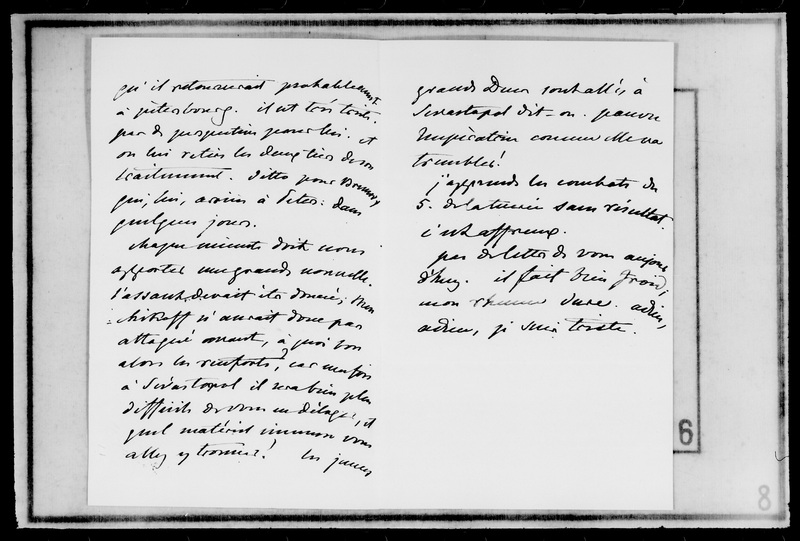 qu'il retournerait probablement
à pétersbourg. il est très triste.
pas de perspective pour lui. et
on lui retire les deux tiers de son
traitement. ditto pour Brunnow,
qui, lui, arrive à Péters: dans
quelques jours.
chaque minute doit nous
apporter une grande nouvelle.
l'assaut devait être donné; Men-
chikoff n'aurait donc pas
attaqué avant, à quoi bon
alors les renforts? car une fois
à Sévastopol il sera bien plus
difficile de vous en déloger, et
quel matériel immense vous
allez y trouver! les jeunes
grands Ducs sont allés à
Sevastopol dit-on. pauvre
Impératrice comme elle va
trembler!
j'apprends les combats du
5. de la tuerie sans résultat.
c'est affreux.
pas de lettre de vous aujour-
d'huy. il fait bien froid;
mon rhume dure. adieu,
adieu, je suis triste.
6
8